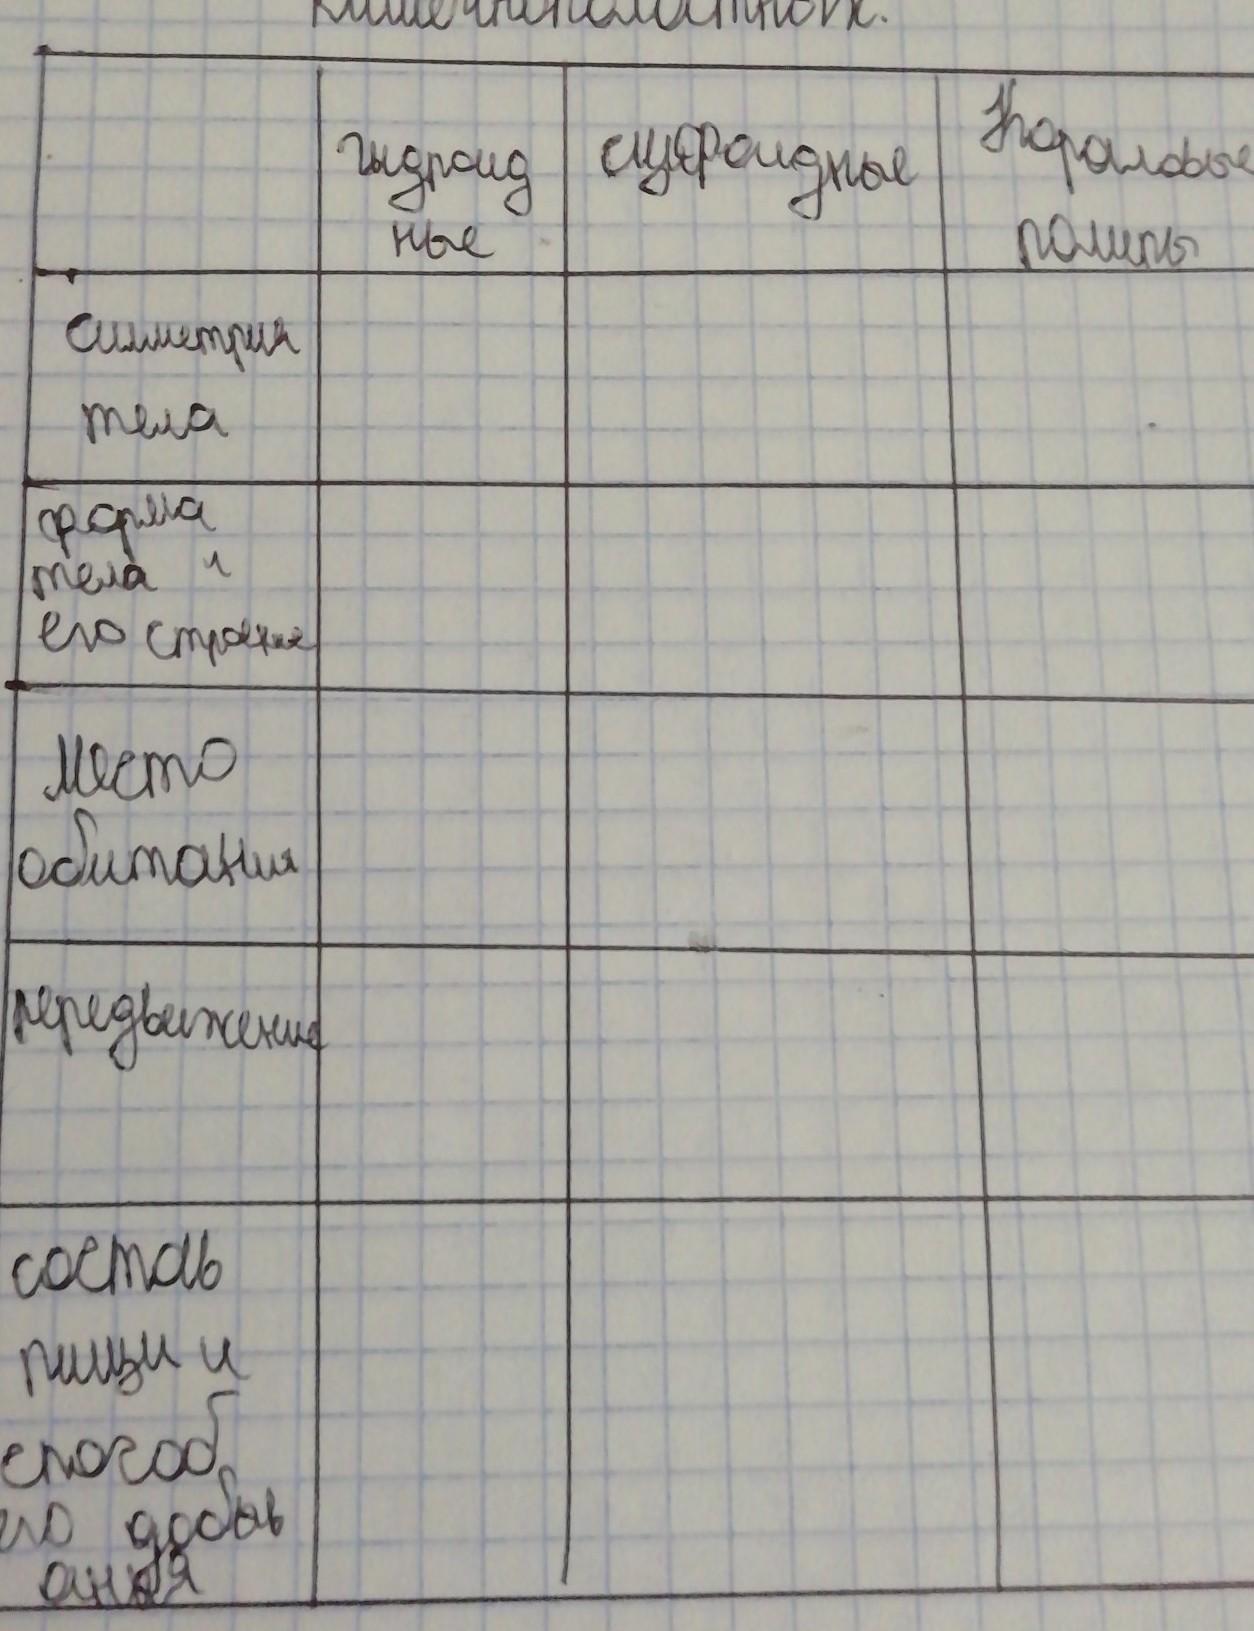 кишечнополостных.
гидроид
ные
сцифоидные
Коралловые
полипы
симетрия
тела
форма
тела и
его строение
Место
обитания
передвижение
состав
пищи и
способ
его добыв
ания